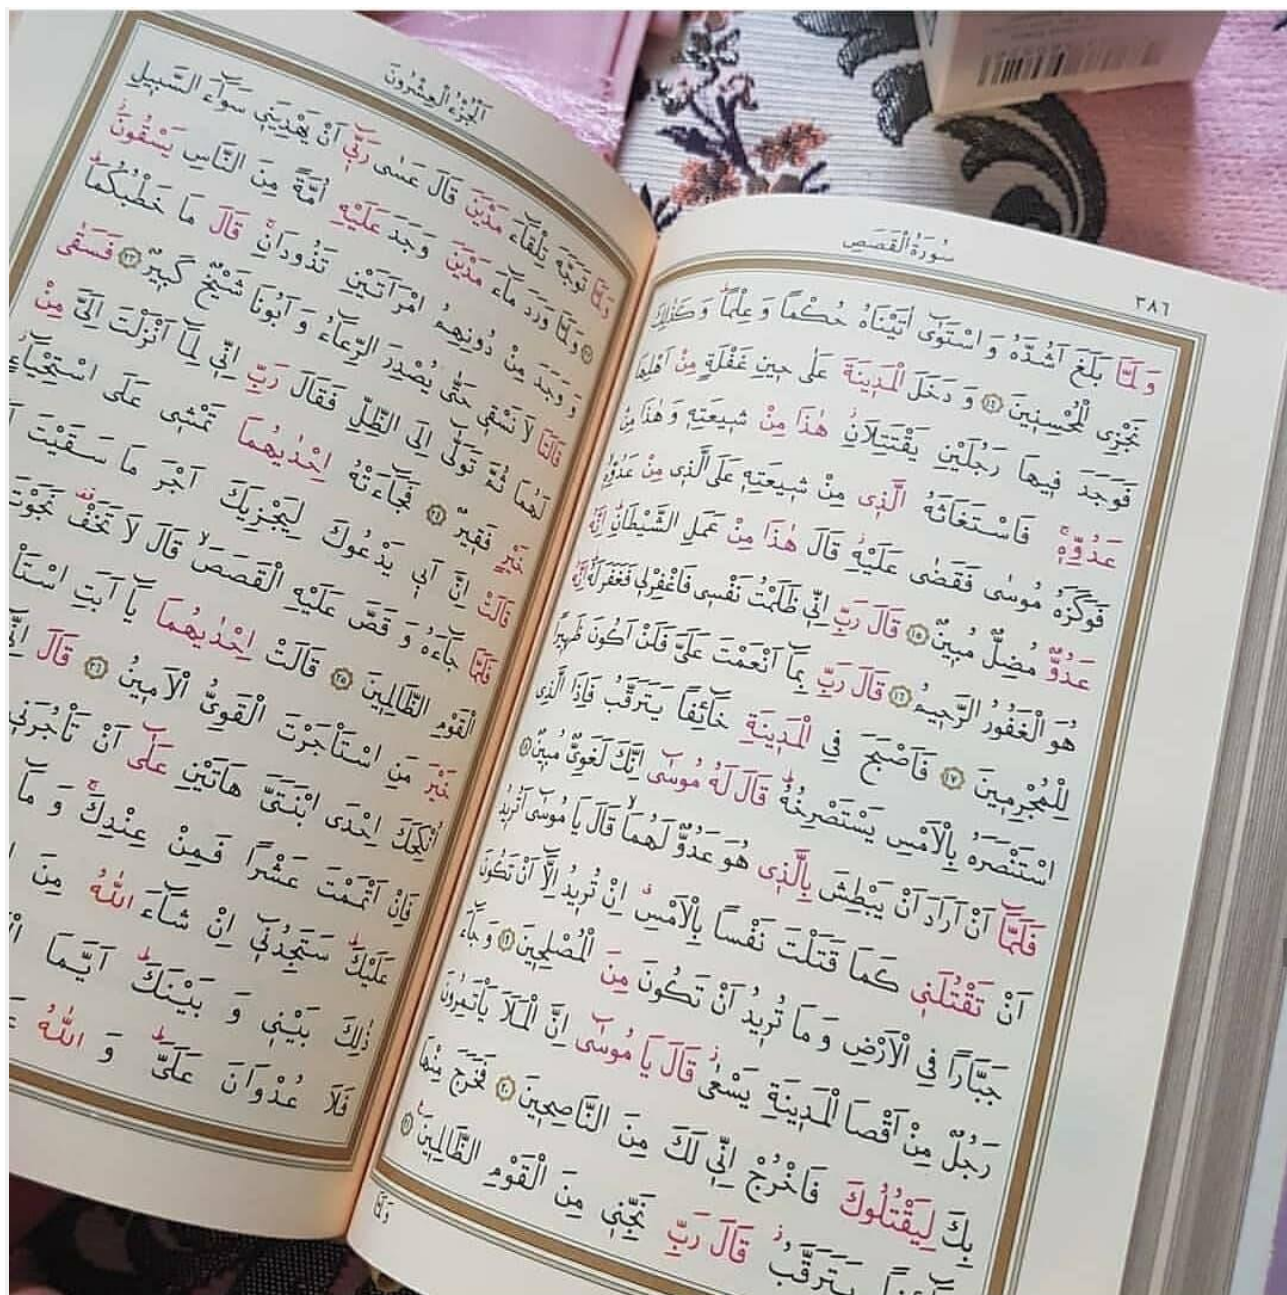 سُورَةُ الْقَصَصِ
٣٨٦
وَلَمَّا بَلَغَ اَشُدَّهُ وَ اسْتَوٰٓى اٰتَيْنَاهُ حُكْمًا وَ عِلْمًاۜ وَ كَذٰلِكَ
نَجْزِى الْمُحْسِنٖينَ ﴿١٤﴾ وَ دَخَلَ الْمَدٖينَةَ عَلٰى حٖينِ غَفْلَةٍ مِنْ اَهْلِهَا
فَوَجَدَ فٖيهَا رَجُلَيْنِ يَقْتَتِلَانِۘ هٰذَا مِنْ شٖيعَتِهٖ وَ هٰذَا مِنْ
عَدُوِّهٖۚ فَاسْتَغَاثَهُ الَّذٖى مِنْ شٖيعَتِهٖ عَلَى الَّذٖى مِنْ عَدُوِّهٖ
فَوَكَزَهُ مُوسٰى فَقَضٰى عَلَيْهِۘ قَالَ هٰذَا مِنْ عَمَلِ الشَّيْطَانِۜ اِنَّهُ
عَدُوٌّ مُضِلٌّ مُبٖينٌ ﴿١٥﴾ قَالَ رَبِّ اِنّٖى ظَلَمْتُ نَفْسٖى فَاغْفِرْلٖى فَغَفَرَ لَهُۜ اِنَّهُ
هُوَ الْغَفُورُ الرَّحٖيمُ ﴿١٦﴾ قَالَ رَبِّ بِمَٓا اَنْعَمْتَ عَلَىَّ فَلَنْ اَكُونَ ظَهٖيرًا
لِلْمُجْرِمٖينَ ﴿١٧﴾ فَاَصْبَحَ فِى الْمَدٖينَةِ خَٓائِفًا يَتَرَقَّبُ فَاِذَا الَّذِى
اسْتَنْصَرَهُ بِالْاَمْسِ يَسْتَصْرِخُهُۜ قَالَ لَهُ مُوسٰٓى اِنَّكَ لَغَوِىٌّ مُبٖينٌ
فَلَمَّٓا اَنْ اَرَادَ اَنْ يَبْطِشَ بِالَّذٖى هُوَ عَدُوٌّ لَهُمَاۙ قَالَ يَا مُوسٰٓى اَتُرٖيدُ
اَنْ تَقْتُلَنٖى كَمَا قَتَلْتَ نَفْسًا بِالْاَمْسِۗ اِنْ تُرٖيدُ اِلَّٓا اَنْ تَكُونَ
جَبَّارًا فِى الْاَرْضِ وَ مَا تُرٖيدُ اَنْ تَكُونَ مِنَ الْمُصْلِحٖينَ ﴿١٩﴾ وَ جَٓاءَ
رَجُلٌ مِنْ اَقْصَا الْمَدٖينَةِ يَسْعٰىۘ قَالَ يَا مُوسٰٓى اِنَّ الْمَلَاَ يَاْتَمِرُونَ
بِكَ لِيَقْتُلُوكَ فَاخْرُجْ اِنّٖى لَكَ مِنَ النَّاصِحٖينَ ﴿٢٠﴾ فَخَرَجَ مِنْهَا
يَتَرَقَّبُۘ قَالَ رَبِّ نَجِّنٖى مِنَ الْقَوْمِ الظَّالِمٖينَ
وَلَمَّا
اَلْجُزْءُ الْعِشْرُونَ
وَلَمَّا تَوَجَّهَ تِلْقَٓاءَ مَدْيَنَ قَالَ عَسٰى رَبّٖٓى اَنْ يَهْدِيَنٖى سَوَٓاءَ السَّبٖيلِ
وَلَمَّا وَرَدَ مَٓاءَ مَدْيَنَ وَجَدَ عَلَيْهِ اُمَّةً مِنَ النَّاسِ يَسْقُونَۘ
وَ وَجَدَ مِنْ دُونِهِمُ امْرَاَتَيْنِ تَذُودَانِۚ قَالَ مَا خَطْبُكُمَاۜ
قَالَتَا لَا نَسْقٖى حَتّٰى يُصْدِرَ الرِّعَٓاءُ وَ اَبُونَا شَيْخٌ كَبٖيرٌ ﴿٢٣﴾ فَسَقٰى
لَهُمَا ثُمَّ تَوَلّٰٓى اِلَى الظِّلِّ فَقَالَ رَبِّ اِنّٖى لِمَٓا اَنْزَلْتَ اِلَىَّ مِنْ
خَيْرٍ فَقٖيرٌ ﴿٢٤﴾ فَجَٓاءَتْهُ اِحْدٰيهُمَا تَمْشٖى عَلَى اسْتِحْيَٓاءٍ
قَالَتْ اِنَّ اَبٖى يَدْعُوكَ لِيَجْزِيَكَ اَجْرَ مَا سَقَيْتَ
فَلَمَّا جَٓاءَهُ وَ قَصَّ عَلَيْهِ الْقَصَصَۙ قَالَ لَا تَخَفْ۠ نَجَوْتَ
الْقَوْمِ الظَّالِمٖينَ ﴿٢٥﴾ قَالَتْ اِحْدٰيهُمَا يَٓا اَبَتِ
خَيْرَ مَنِ اسْتَاْجَرْتَ الْقَوِىُّ الْاَمٖينُ ﴿٢٦﴾ قَالَ
اُنْكِحَكَ اِحْدَى ابْنَتَىَّ هَاتَيْنِ عَلٰٓى اَنْ تَاْجُرَنٖى
فَاِنْ اَتْمَمْتَ عَشْرًا فَمِنْ عِنْدِكَۚ وَ مَٓا
عَلَيْكَۜ سَتَجِدُنٖٓى اِنْ شَٓاءَ اللّٰهُ مِنَ
ذٰلِكَ بَيْنٖى وَ بَيْنَكَۜ اَيَّمَا
فَلَا عُدْوَانَ عَلَىَّۜ وَ اللّٰهُ